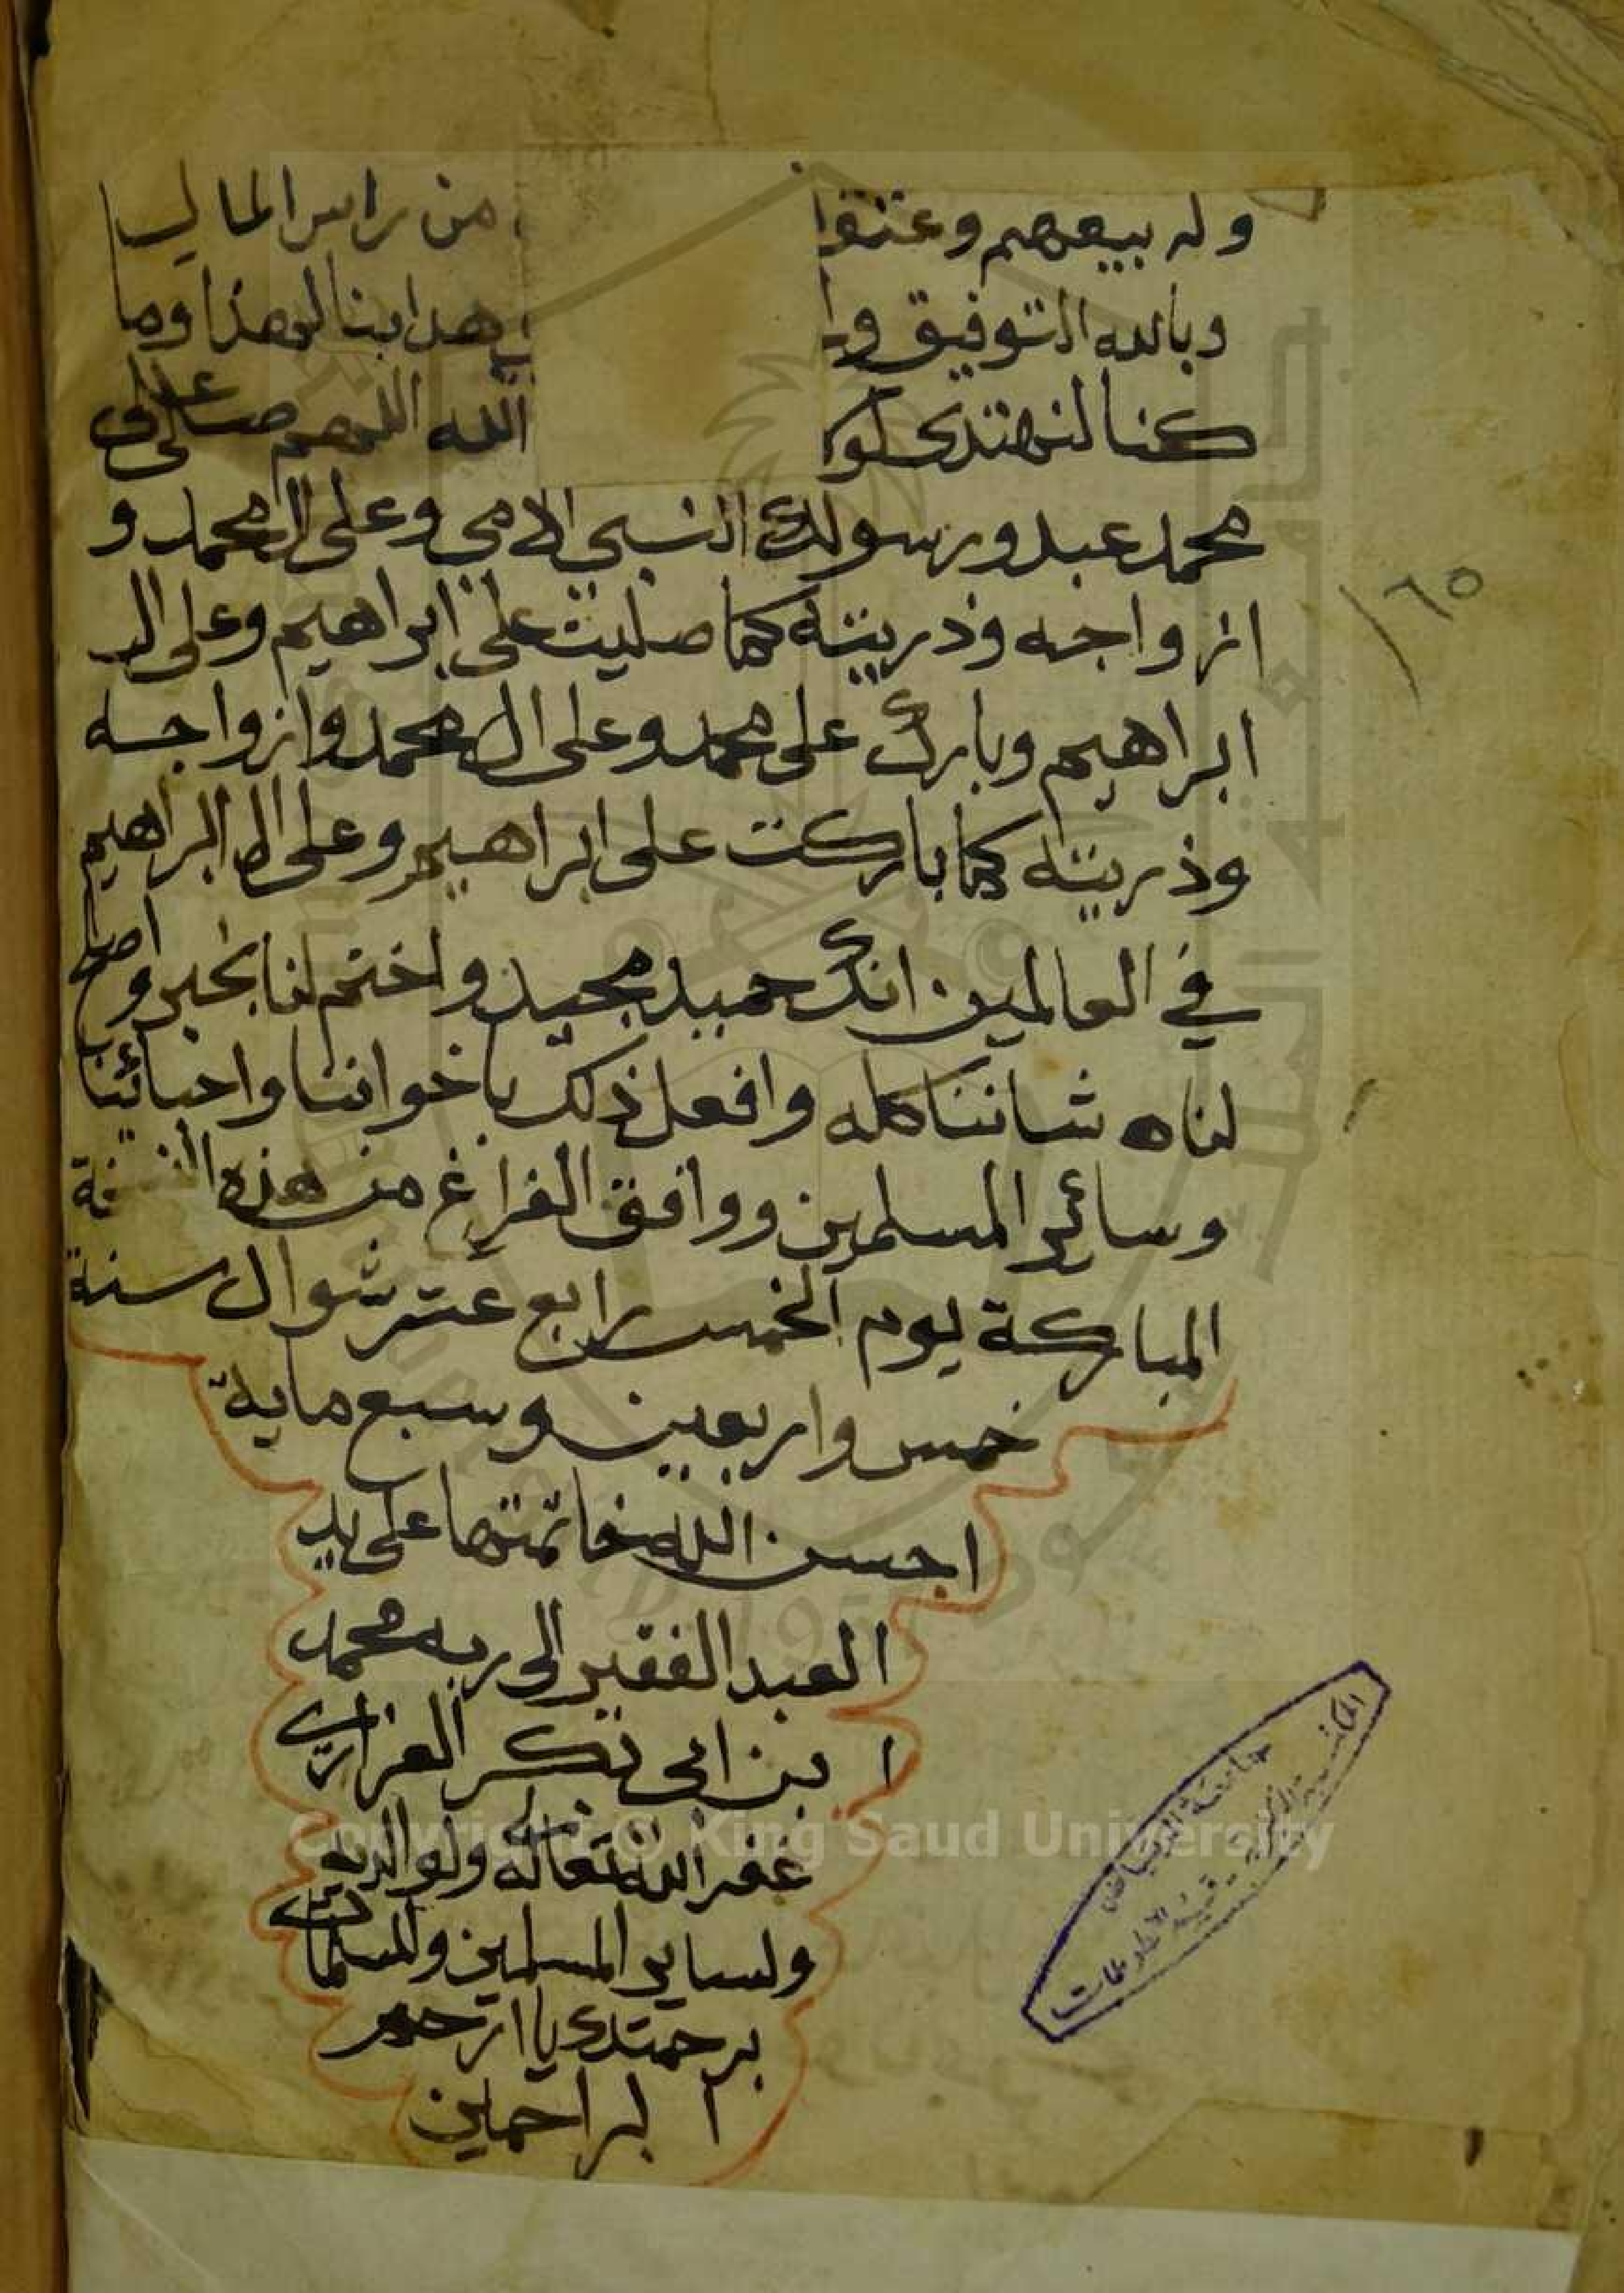 وله بيعهم وعتقهم من راس المال
وبالله التوفيق هدانا لهذا وما
كنا لنهتدي لولا الله اللهم صل على
محمد عبدك ورسولك النبي الامي وعلى ال محمد و
ازواجه وذريته كما صليت على ابراهيم وعلى ال
ابراهيم وبارك على محمد وعلى ال محمد وازواجه
وذريته كما باركت على ابراهيم وعلى ال ابراهيم
في العالمين انك حميد مجيد واختم لنا بخير واصلح
لنا شاننا كله وافعل ذلك باخواننا واحبائنا
وسائر المسلمين ووافق الفراغ من هذه النسخة
المباركة يوم الخميس رابع عشر شوال سنة
خمس واربعين وسبع ماية
احسن الله خاتمتها على يد
العبد الفقير الى ربه محمد
بن ابي بكر الفزاري
غفر الله تعالى له ولوالديه
ولساير المسلمين والمسلمات
برحمتك يا ارحم
الراحمين
١٦٥
جامعة الرياض
قسم المخطوطات
Copyright © King Saud University